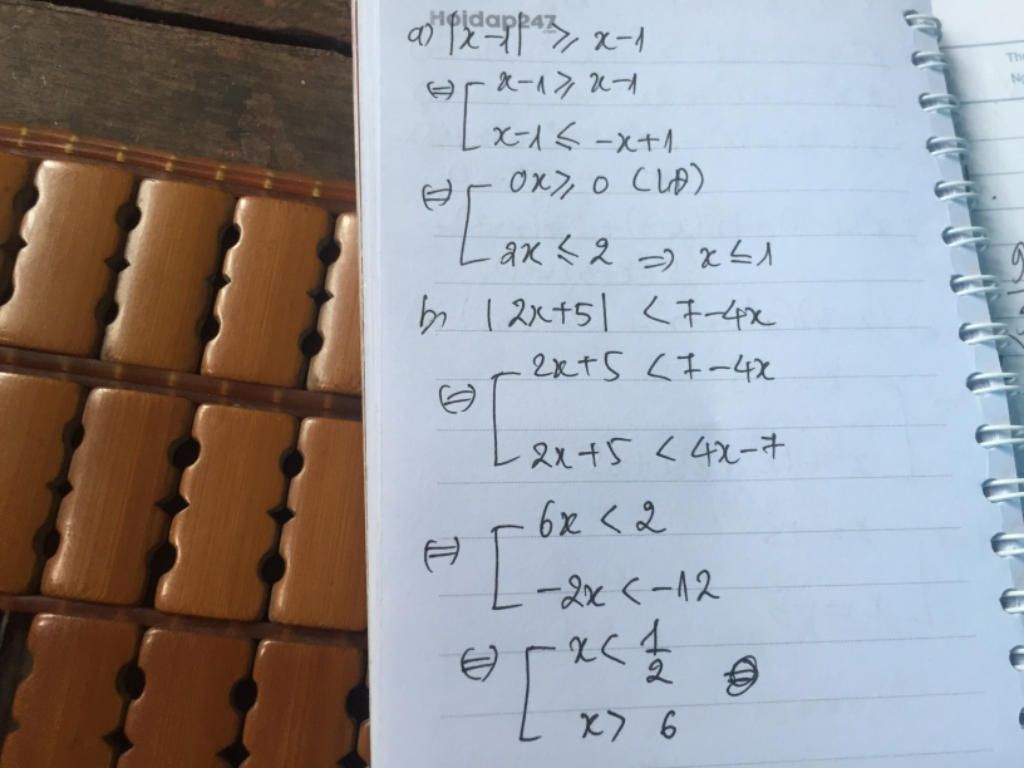 Hoidap247
a) |x-1| ⩾ x-1
⇔ [ x-1 ⩾ x-1
x-1 ≤ -x+1
⇔ [ 0x ⩾ 0 (LĐ)
2x ≤ 2 ⇒ x ≤ 1
b, |2x+5| < 7-4x
⇔ [ 2x+5 < 7-4x
2x+5 < 4x-7
⇔ [ 6x < 2
-2x < -12
⇔ [ x < 1/2
x > 6